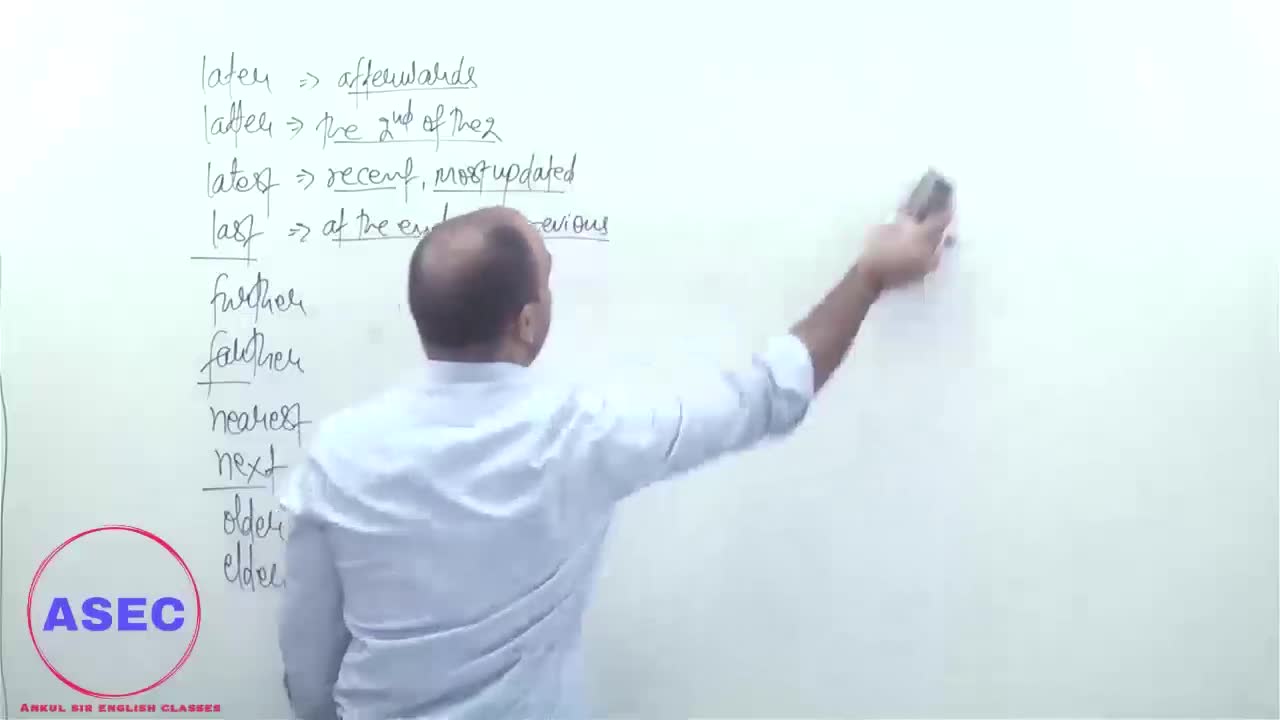 later => afterwards
latter => the 2nd of the 2
latest => recent, most updated
last => at the
further
farther
nearest
next
older
elder
ASEC
ANKUL SIR ENGLISH CLASSES